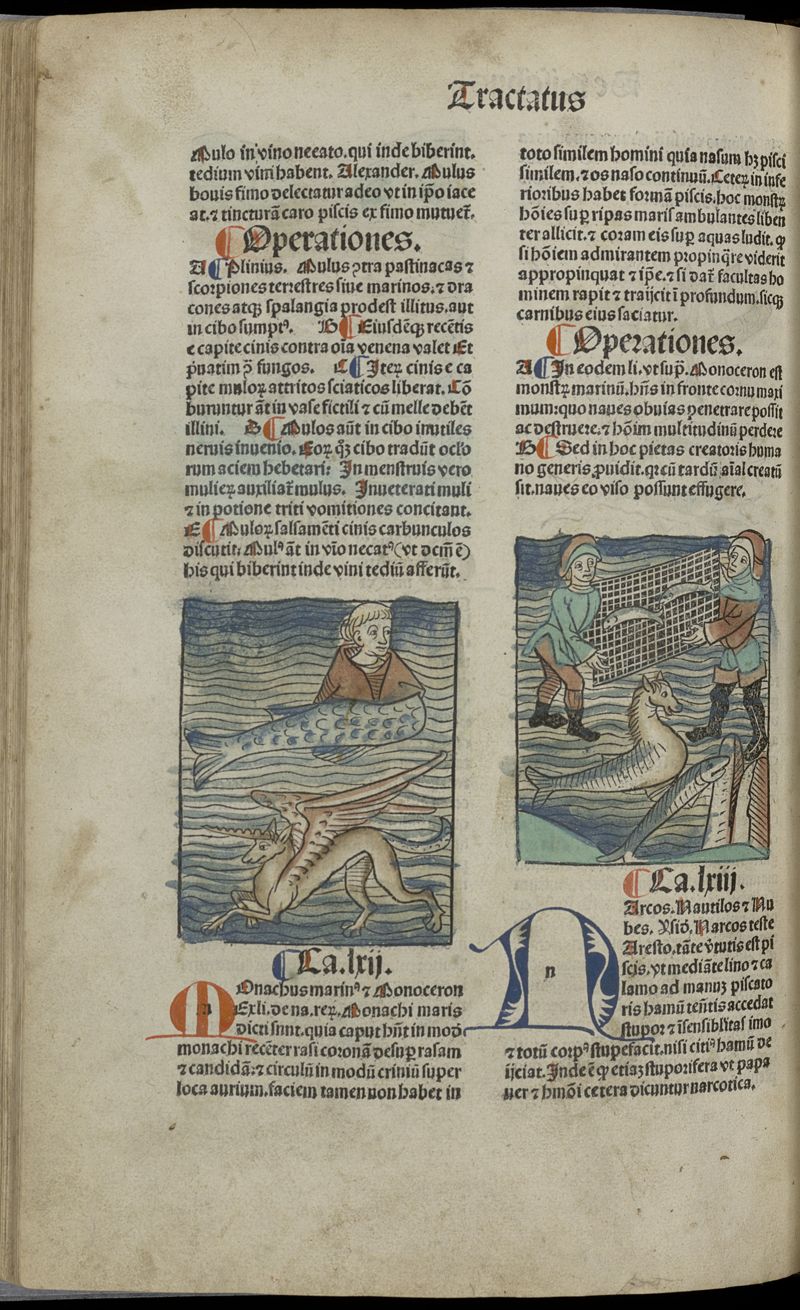 Tractatus
Mulo in vino necato. qui inde biberint.
tedium vini habent. Alexander. Mulus
bouis fimo delectatur adeo vt in ip̄o iace
at. ⁊ tincturā caro piscis ex fimo mutuet̄.
¶ Operationes.
A ¶ Plinius. Mulus ꝯtra pastinacas ⁊
scorpiones terrestres siue marinos. ⁊ dra
cones atqꝫ spalangia prodest illitus. aut
in cibo sumptꝰ. B ¶ Eiusdēqꝫ recētis
e capite cinis contra oīa venena valet Et
p̱uatim ꝓ fungos. C ¶ Iteꝝ cinis e ca
pite muloꝝ attritos sciaticos liberat. Cō
buruntur āt in vase fictili ⁊ cū melle debēt
illini. D ¶ Mulos aūt in cibo inutiles
neruis inuenio. Eoꝝ qꝫ cibo tradūt oculo
rum aciem hebetari: In menstruis vero
mulieꝝ auxiliat̄ mulus. Inueterati muli
⁊ in potione triti vomitiones concitant.
E ¶ Muloꝝ salsamēti cinis carbunculos
discutit: Mulꝰ āt in vīo necatꝰ (vt dcm̄ ē)
his qui biberint inde vini tediū afferūt.
¶ Ca. lxij.
MOnachus marinꝰ ⁊ Monoceron
Ex li. de na. reꝝ. Monachi maris
dicti sunt. quia caput hn̄t in modū
monachi recēter rasi coronā desuꝑ rasam
⁊ candidā: ⁊ circulū in modū criniū super
loca aurium. faciem tamen non habet in
toto similem homini quia nasum hꝫ pisci
similem. ⁊ os naso continuū. Ceteꝝ in infe
rioribus habet formā piscis. hoc monstꝝ
hōies suꝑ ripas maris ambulantes liben
ter allicit. ⁊ coram eis suꝑ aquas ludit. ꝙ
si hōiem admirantem propinq̄re viderit
appropinquat ⁊ ip̄e. ⁊ si dat̄ facultas ho
minem rapit ⁊ traijcit ī profundum. sicqꝫ
carnibus eius saciatur.
¶ Operationes.
A ¶ In eodem li. vt sup̄. Monoceron est
monstꝝ marinū. hn̄s in fronte cornu maxi
mum: quo naues obuias penetrare possit
ac destruere. ⁊ hōim multitudinū perdere
B ¶ Sed in hoc pietas creatoris huma
no generis ꝓuidit. qꝛ cū tardū aīal creatū
sit. naues eo viso possunt effugere.
¶ Ca. lxiij.
n Arcos. Nautilos ⁊ Nu
bes. Ysid̄. Narcos teste
Aresto. tāte v̄tutis est pi
scis. vt mediāte lino ⁊ ca
lamo ad manuꝫ piscato
ris hamū tenētis accedat
stupor ⁊ īsensibl̄itas imo
⁊ totū corpꝰ stupefacit. nisi citiꝰ hamū de
ijciat. Inde ē ꝙ etiaꝫ stuporifera vt papa
uer ⁊ hmōi cetera dicuntur narcotica.